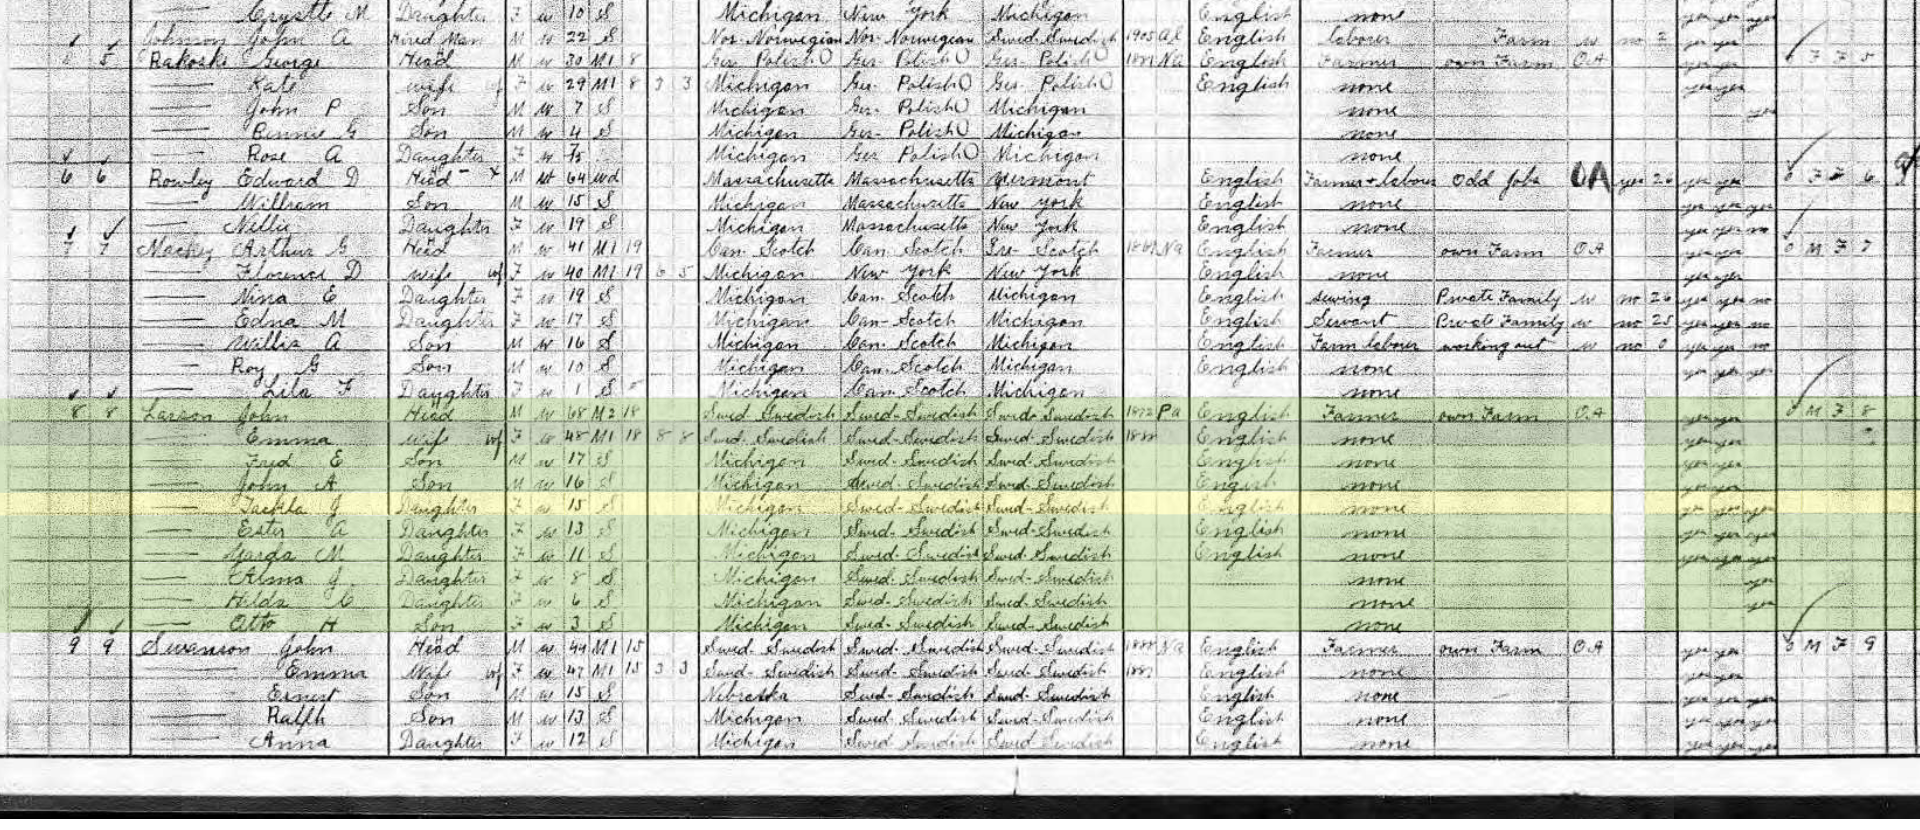 Crystle M Daughter F w 10 S Michigan New York Michigan English none yes yes yes
Johnson John A Hired Man M w 22 S Nor-Norwegian Nor-Norwegian Swed-Swedish 1905 Al English laborer Farm w no 2 yes yes
5 Rakoski George Head M w 30 M1 8 Ger Polish Ger Polish Ger Polish Na English Farmer own Farm OA yes yes F 5
Kate wife F w 29 M1 8 3 3 Michigan Ger Polish Ger Polish English none yes yes
John P Son M w 7 S Michigan Ger Polish Michigan none yes
Bennie G Son M w 4 S Michigan Ger Polish Michigan none
Rose A Daughter F w Michigan Ger Polish Michigan none
6 6 Rowley Edward D Head M 64 wd Massachusetts Massachusetts Vermont English Farmer + labour Odd Jobs OA yes 26 yes yes F 6
William Son M w 15 S Michigan Massachusetts New York English none yes yes yes
Nellie Daughter F w 19 S Michigan Massachusetts New York English none yes yes no
7 7 Mackey Arthur G Head M w 41 M1 19 Can-Scotch Can-Scotch Ire-Scotch Na English Farmer own Farm OA yes yes M F 7
Florence D wife F w 40 M1 19 6 5 Michigan New York New York English none yes yes
Nina E Daughter F w 19 S Michigan Can-Scotch Michigan English Sewing Private Family w no 26 yes yes no
Edna M Daughter F w 17 S Michigan Can-Scotch Michigan English Servant Private Family w no 25 yes yes no
Willis A Son M w 16 S Michigan Can-Scotch Michigan English Farm labour working out w no 0 yes yes no
Roy G Son M w 10 S Michigan Can-Scotch Michigan English none yes yes yes
Lila F Daughter F w 1 S Michigan Can Scotch Michigan none
8 8 Larson John Head M w 68 M2 18 Swed Swedish Swed-Swedish Swed-Swedish 1872 Pa English Farmer own Farm OA yes yes M F 8
Emma wife F w 48 M1 18 8 8 Swed-Swedish Swed-Swedish Swed-Swedish English none yes yes
Fred E Son M w 17 S Michigan Swed-Swedish Swed-Swedish English none yes yes
John A Son M w 16 S Michigan Swed-Swedish Swed-Swedish English none yes yes
Teckla J Daughter F w 15 S Michigan Swed-Swedish Swed-Swedish English none yes yes yes
Ester A Daughter F w 13 S Michigan Swed-Swedish Swed-Swedish English none yes yes yes
Garda M Daughter F w 11 S Michigan Swed-Swedish Swed-Swedish English none yes yes yes
Alma J Daughter F w 8 S Michigan Swed-Swedish Swed-Swedish none yes
Hilda C Daughter F w 6 S Michigan Swed-Swedish Swed-Swedish none yes
Otto H Son M w 3 S Michigan Swed-Swedish Swed-Swedish none
9 9 Swanson John Head M w 44 M1 15 Swed-Swedish Swed-Swedish Swed-Swedish 1888 Na English Farmer own Farm OA yes yes M F 9
Emma Wife F w 47 M1 15 3 3 Swed-Swedish Swed-Swedish Swed-Swedish English none yes yes
Ernest Son M w 15 S Nebraska Swed-Swedish Swed-Swedish English none yes yes yes
Ralph Son M w 13 S Michigan Swed-Swedish Swed-Swedish English none yes yes yes
Anna Daughter F w 12 S Michigan Swed Swedish Swed Swedish English none yes yes yes